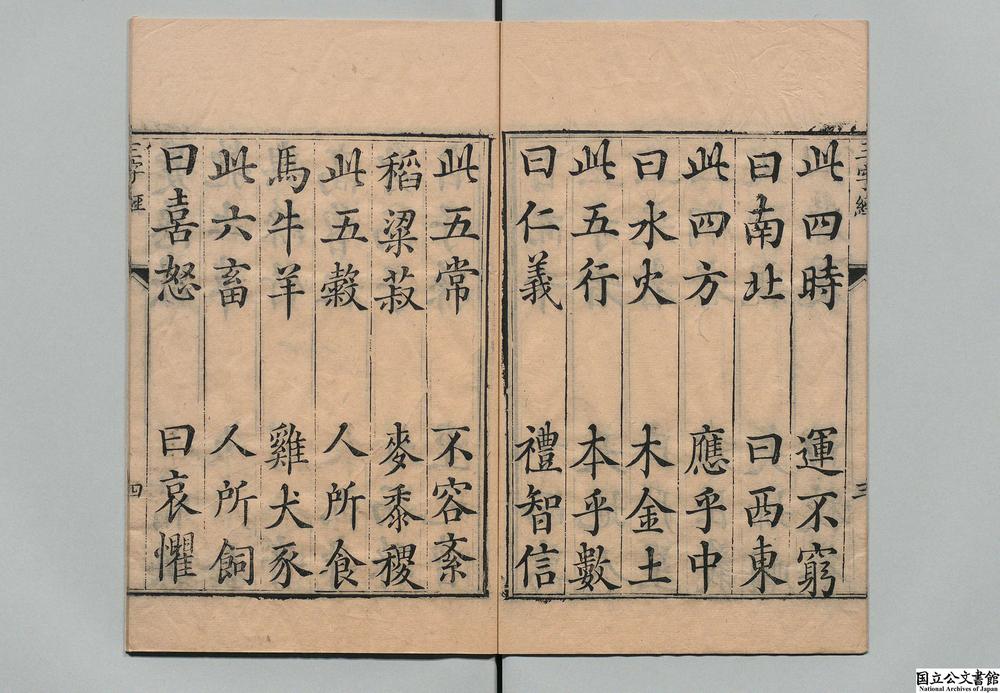 三字經
三
此四時 運不窮
曰南北 曰西東
此四方 應乎中
曰水火 木金土
此五行 本乎數
曰仁義 禮智信
此五常 不容紊
稻粱菽 麥黍稷
此五穀 人所食
馬牛羊 雞犬豕
此六畜 人所飼
曰喜怒 曰哀懼
三字經
四
国立公文書館
National Archives of Japan